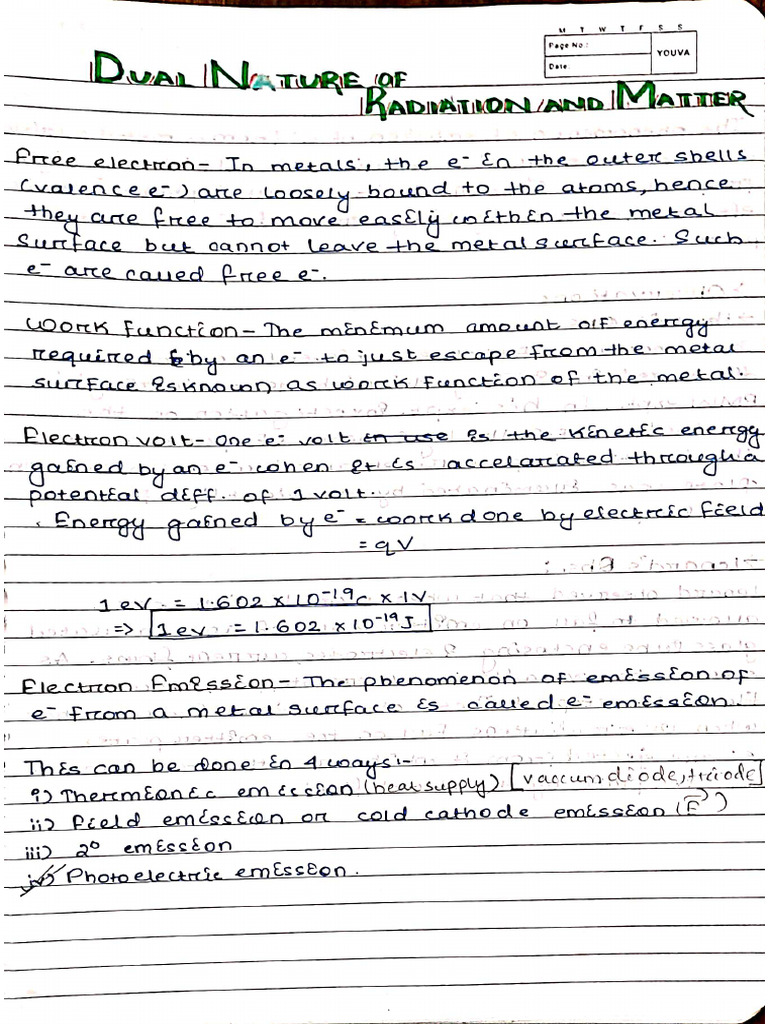 M T W T F S S
Page No.:
YOUVA
Date:
DUAL NATURE OF
RADIATION AND MATTER
Free electron- In metals, the e⁻ in the outer shells
(valence e⁻) are loosely bound to the atoms, hence
they are free to move easily within the metal
surface but cannot leave the metal surface. Such
e⁻ are called free e⁻.
Work function- The minimum amount of energy
required by an e⁻ to just escape from the metal
surface is known as work function of the metal.
Electron volt- One e⁻ volt is the kinetic energy
gained by an e⁻ when it is accelarated through a
potential diff. of 1 volt.
. Energy gained by e⁻ = work done by electric field
= qV
1 eV = 1.602 × 10⁻¹⁹C × 1V
=> 1 eV = 1.602 × 10⁻¹⁹J
Electron Emission- The phenomenon of emission of
e⁻ from a metal surface is called e⁻ emission.
This can be done in 4 ways:-
i) Thermionic emission (heat supply) [vaccum diode, triode]
ii) Field emission or cold cathode emission (E⃗)
iii) 2° emission
iv) Photoelectric emission.